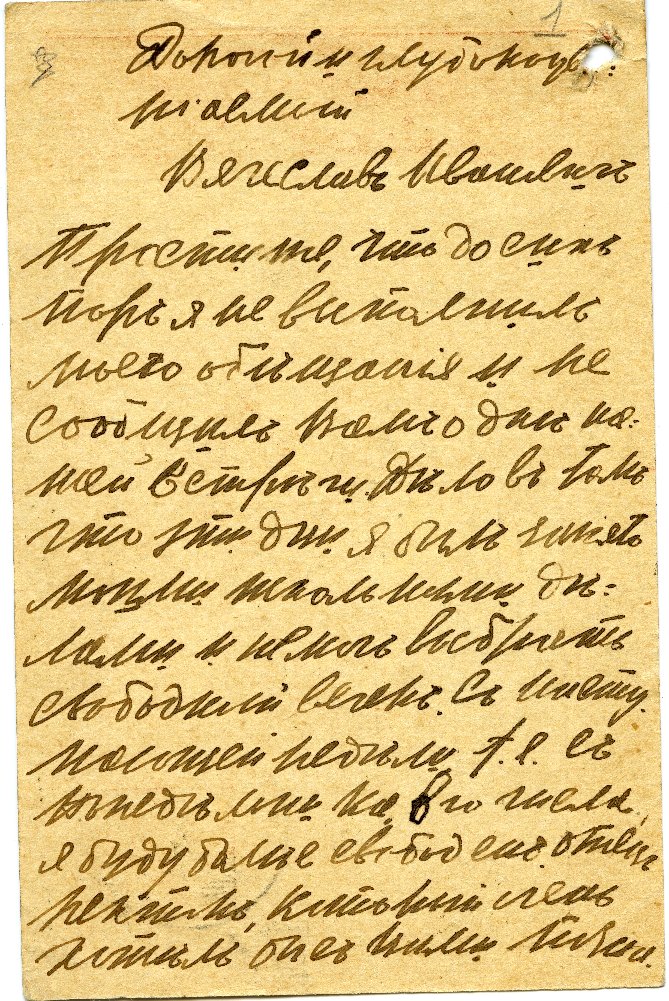 1
3
Дорогой и глубокоув.:
жаемый
Вячеславъ Ивановичъ
Простите, что до сихъ
поръ я не выполнилъ
моего обѣщанія и не
сообщилъ Вамъ о днѣ на-
шей встрѣчи. Дѣло въ томъ
что эти дни я былъ занятъ
моими школьными дѣ-
лами и не могъ выбрать
свободный вечеръ. Съ насту
пающей недѣли т.е. съ
понедѣльника 8го числа,
я буду болѣе свободенъ. Отецъ
ректоръ, который очень
хотѣлъ бы съ Вами позна.